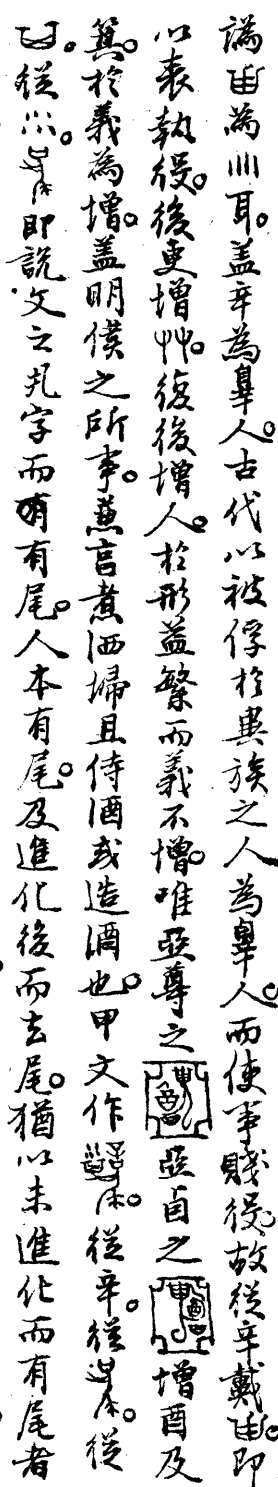 譌甶為𠙹耳。盖辛為辠人。古代以被俘於異族之人為辠人。而使事賤役。故從辛戴甶。即
以表執役。後更增艸。復後增人。於形益繁而義不增。唯亞尊之 亞卣之 增酉及
箕。於義為增。盖明僕之所事。兼言煮洒埽且侍酒或造酒也。甲文作 從辛。從 從
𠙹。從 即說文之丮字而有有尾。人本有尾。及進化後而去尾。猶以未進化而有尾者